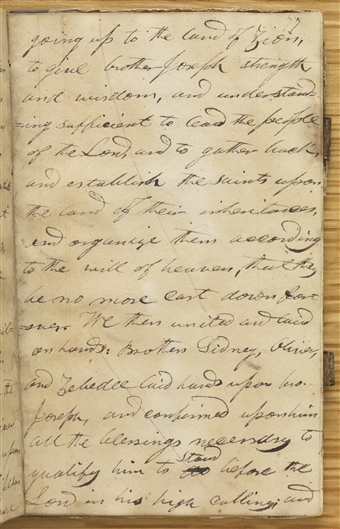 going up to the land of Zion,
to give brother Joseph strength,
and wisdom, and understand-
=ing sufficient to lead the people
of the Lord, and to gather back,
and establish the saints upon
the land of their inheritances,
and organize them according
to the will of heaven, that they
be no more cast down for-
=ever. We then united and laid
on hands: Brothers Sidney, Oliver,
and Zebedee laid hands upon bro.
Joseph, and confirmed upon him
all the blessings necessary to
qualify him to stand before the
Lord in his high calling; and